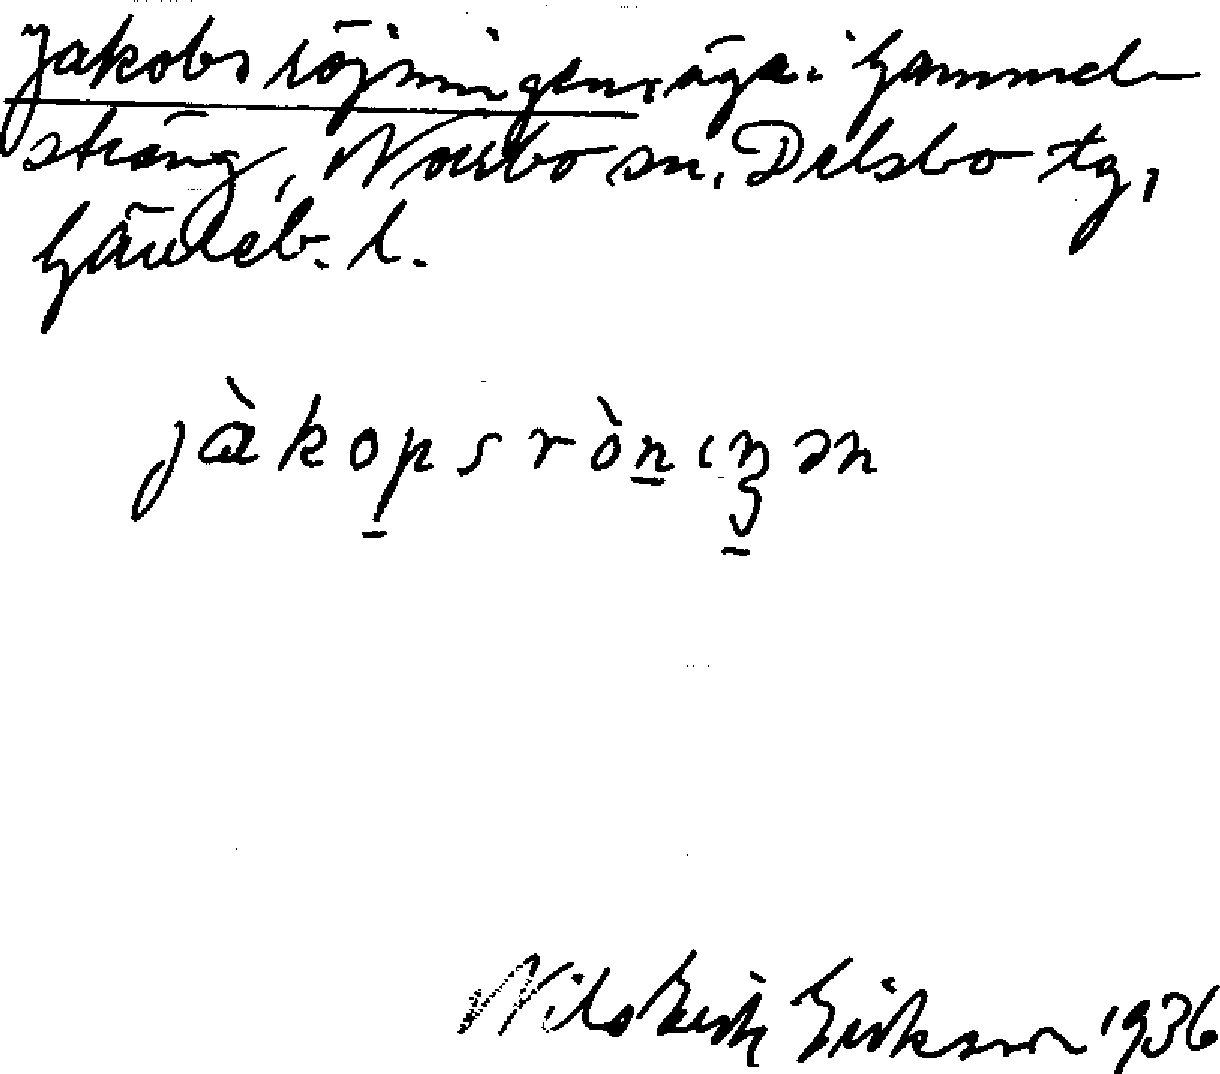 Jakobsröjningen, äga i Gammel-
sträng, Norrbo sn. Delsbo tg,
Gävleb. l.
jàkopsròniŋən
Nils Erik Eriksson 1936